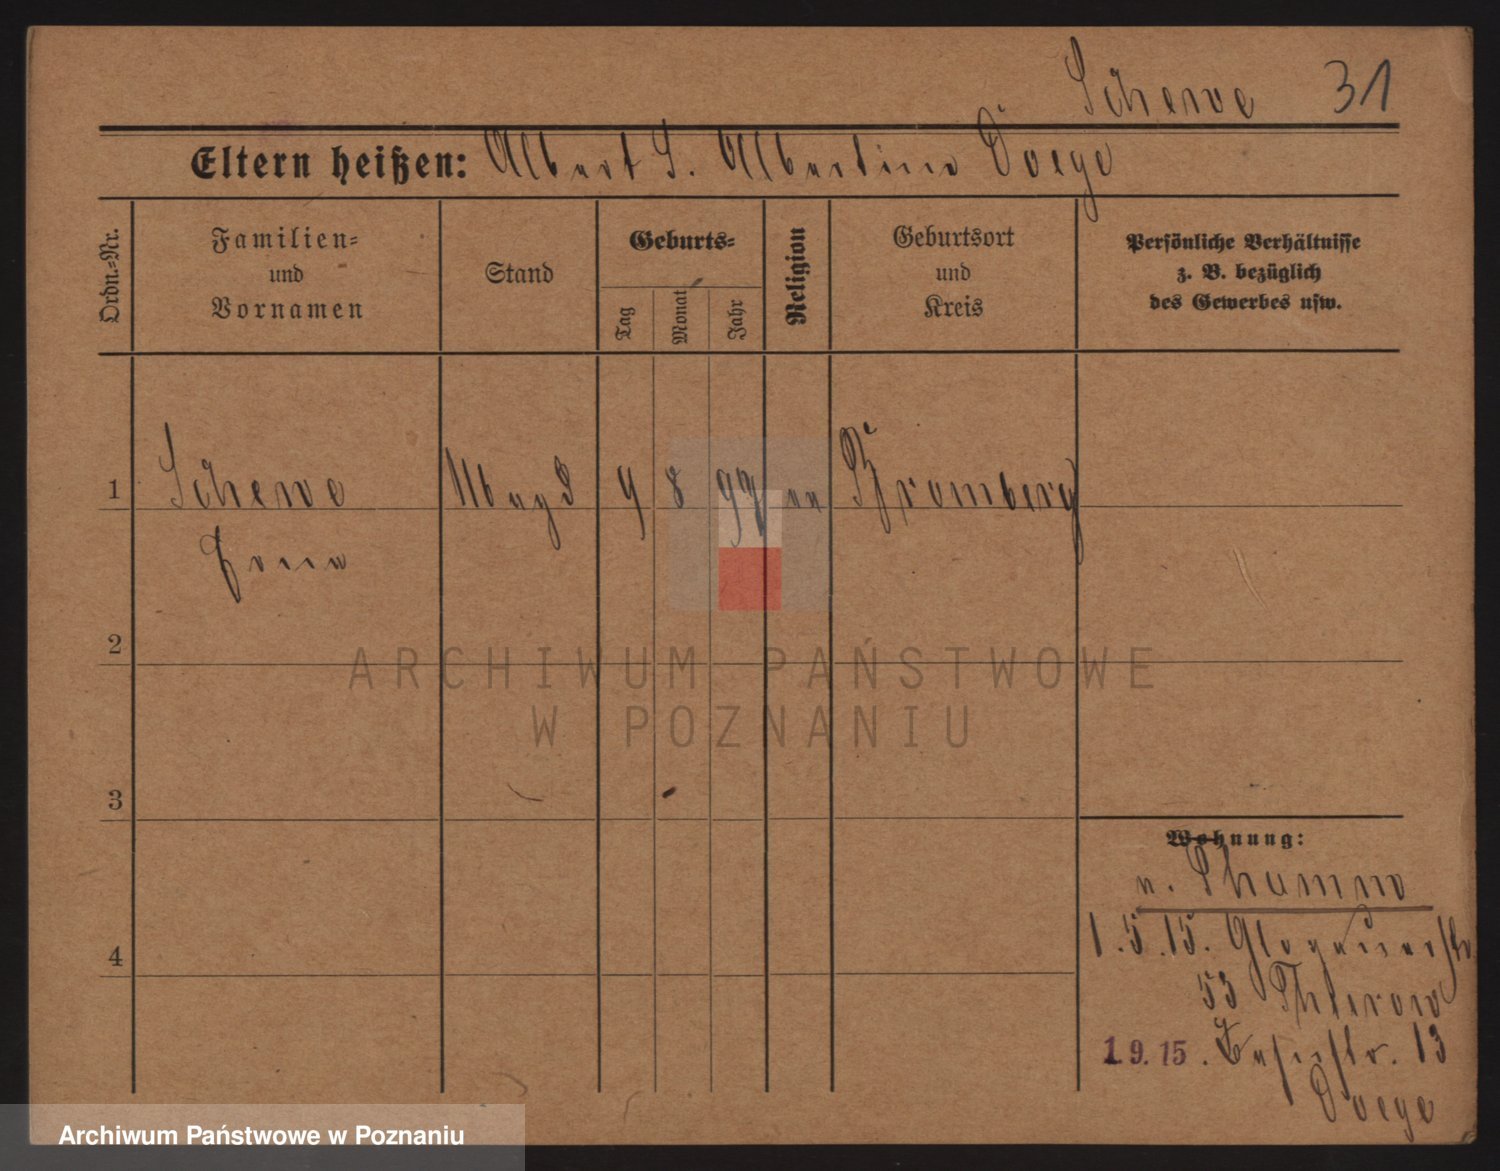 Schewe 31
Eltern heißen: Albert S. Albertine Doege
Ordn.=Nr.
Familien=
und
Vornamen
Stand
Geburts=
Tag
Monat
Jahr
Religion
Geburtsort
und
Kreis
Persönliche Verhältnisse
z. B. bezüglich
des Gewerbes usw.
1 Schewe Magd 9 8 99 ev Bromberg
Erna
2
ARCHIWUM PAŃSTWOWE
W POZNANIU
3
Wohnung:
v. Schumno
1.5.15. Glogauerstr
53
4
1.9.15. 13
Doege
Archiwum Państwowe w Poznaniu